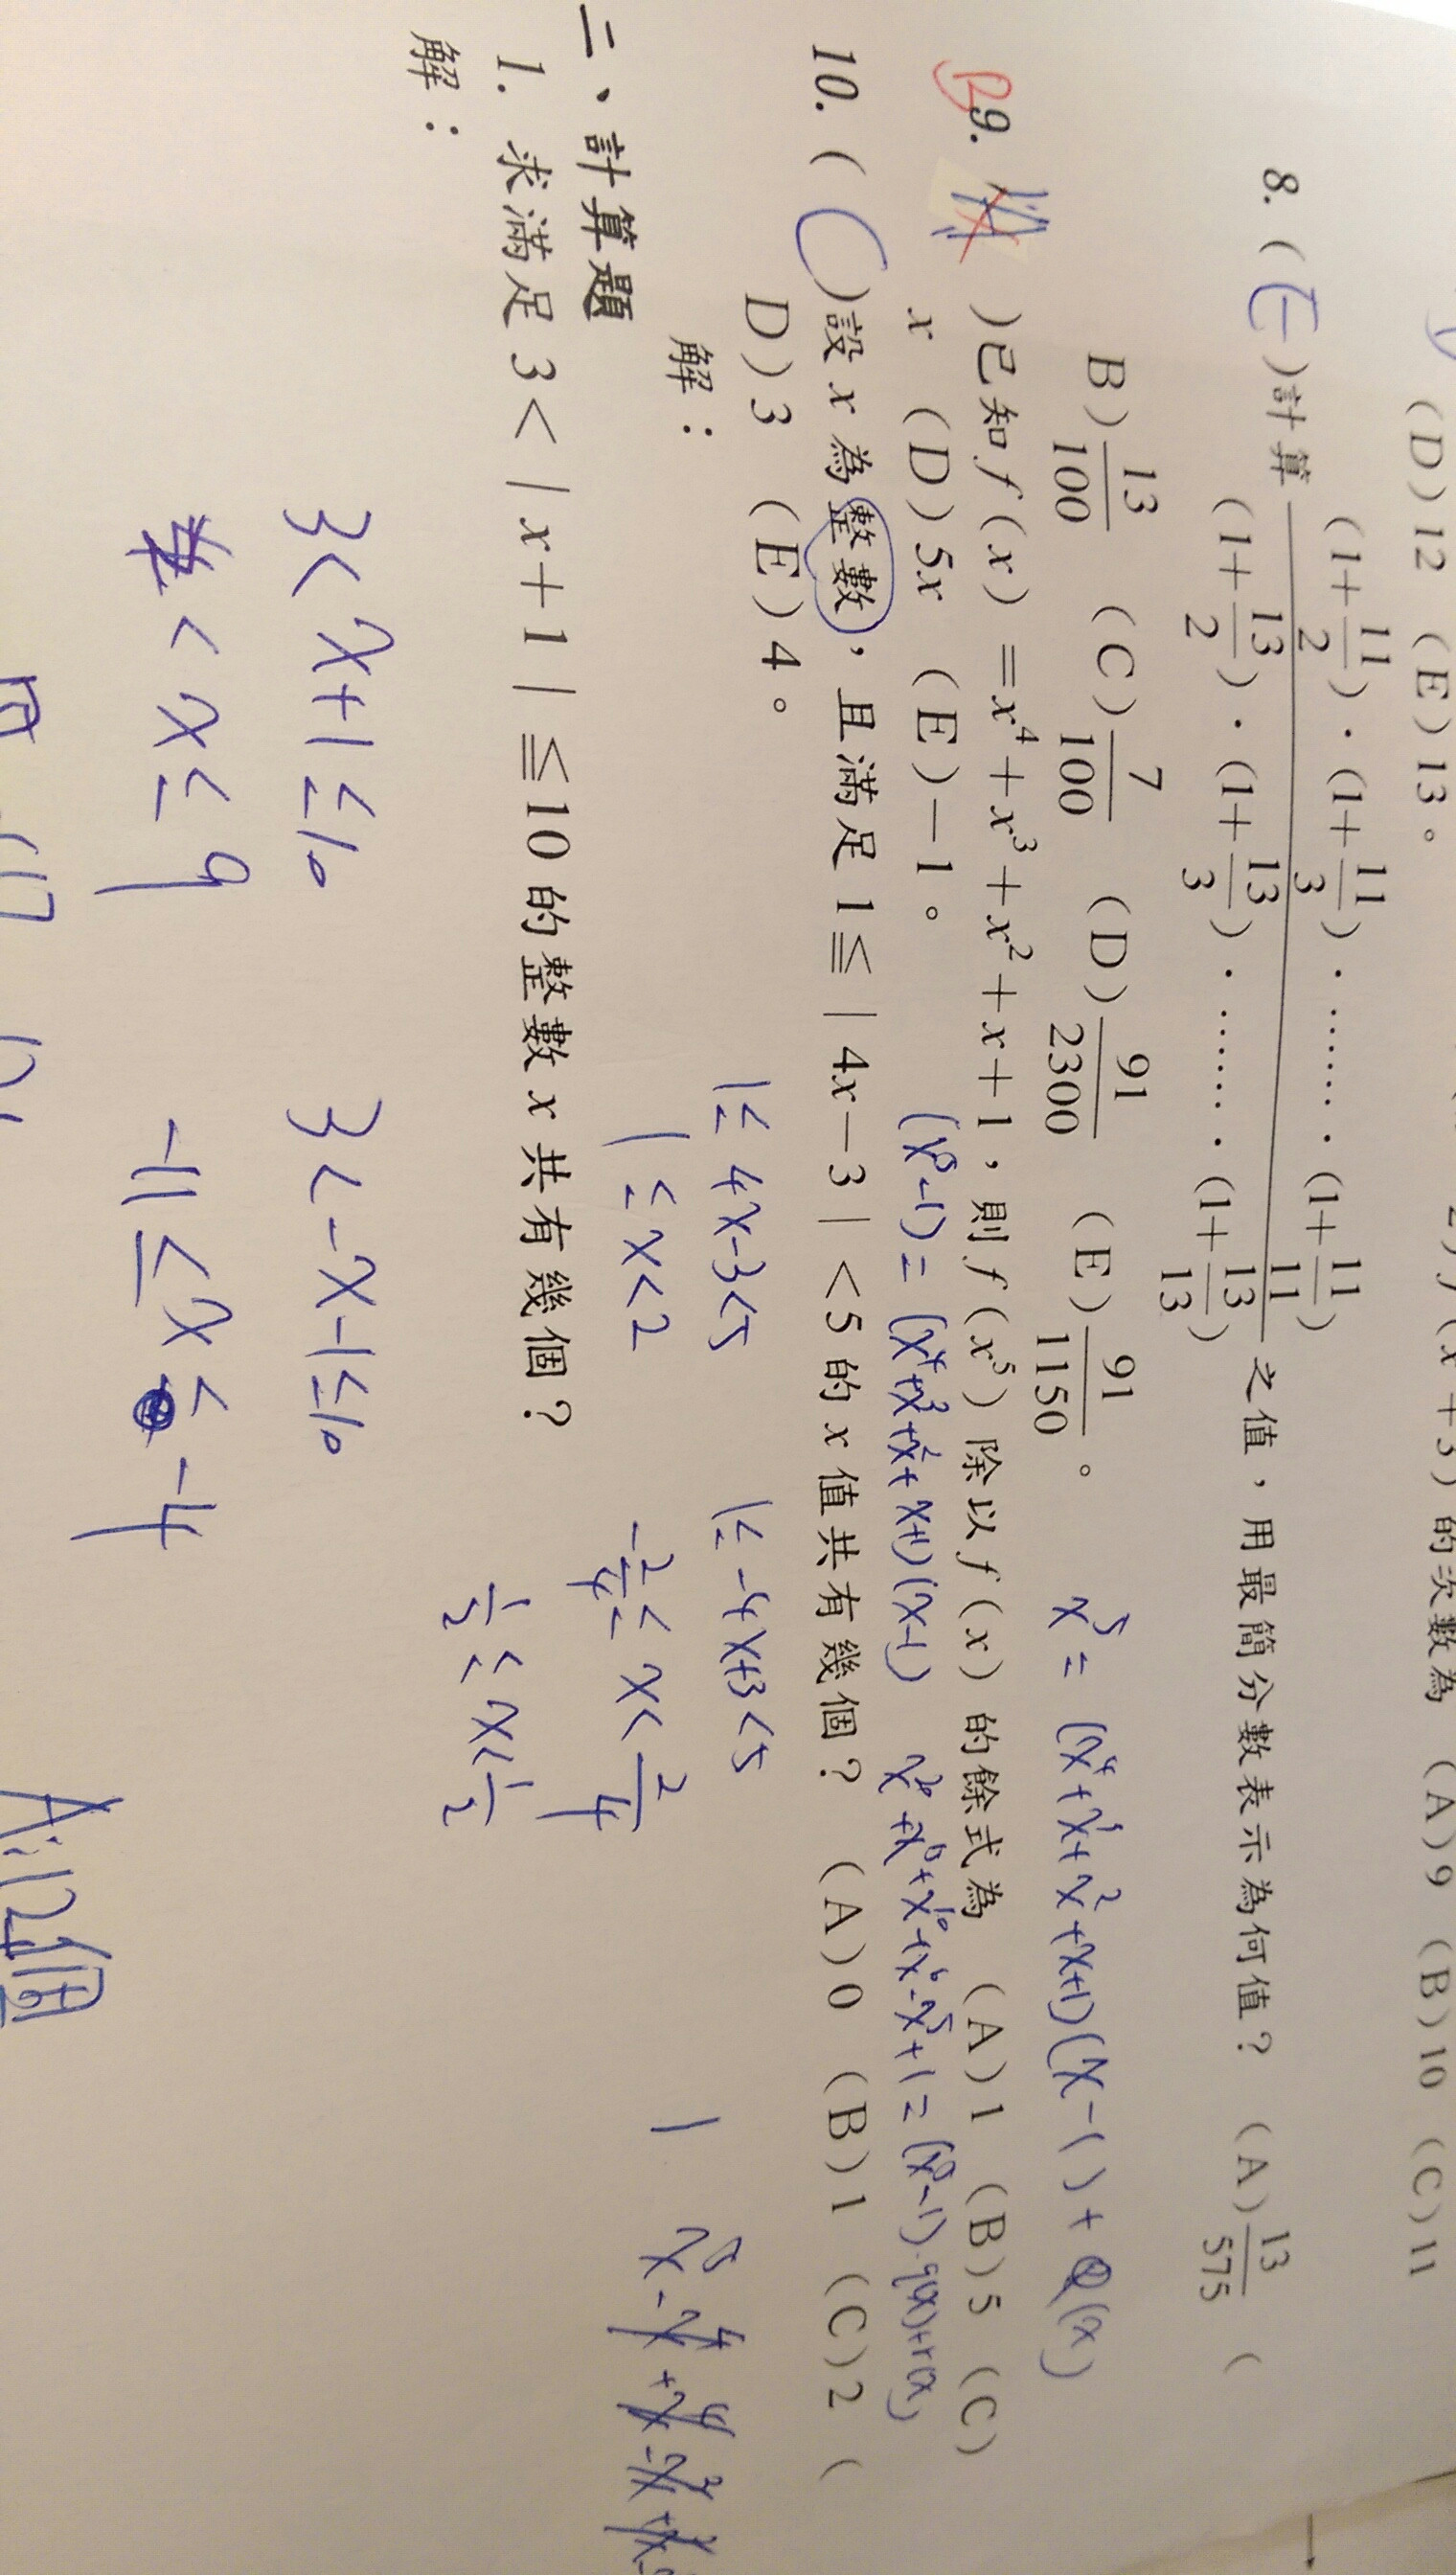 (D)12 (E)13。
的次數為 (A)9 (B)10 (C)11
8. (E)計算 (1+11/2)·(1+11/3)·……·(1+11/11) / (1+13/2)·(1+13/3)·……·(1+13/13) 之值,用最簡分數表示為何值? (A)13/575 (
B)13/100 (C)7/100 (D)91/2300 (E)91/1150。
x⁵= (x⁴+x³+x²+x+1)(x-1)+Q(x)
B 9. )已知f(x)=x⁴+x³+x²+x+1,則f(x⁵)除以f(x)的餘式為 (A)1 (B)5 (C)
x (D)5x (E)-1。
(x⁵-1)=(x⁴+x³+x²+x+1)(x-1)
10. (C)設x為整數,且滿足1≦|4x-3|<5的x值共有幾個? (A)0 (B)1 (C)2 (
D)3 (E)4。
解:
1≤4x-3<5 1≤-4x+3<5
1≤x<2
二、計算題
1. 求滿足3<|x+1|≦10的整數x共有幾個?
解:
3<x+1≤10 3<-x-1≤10
<x≤9 -11≤x<-4
A:12個